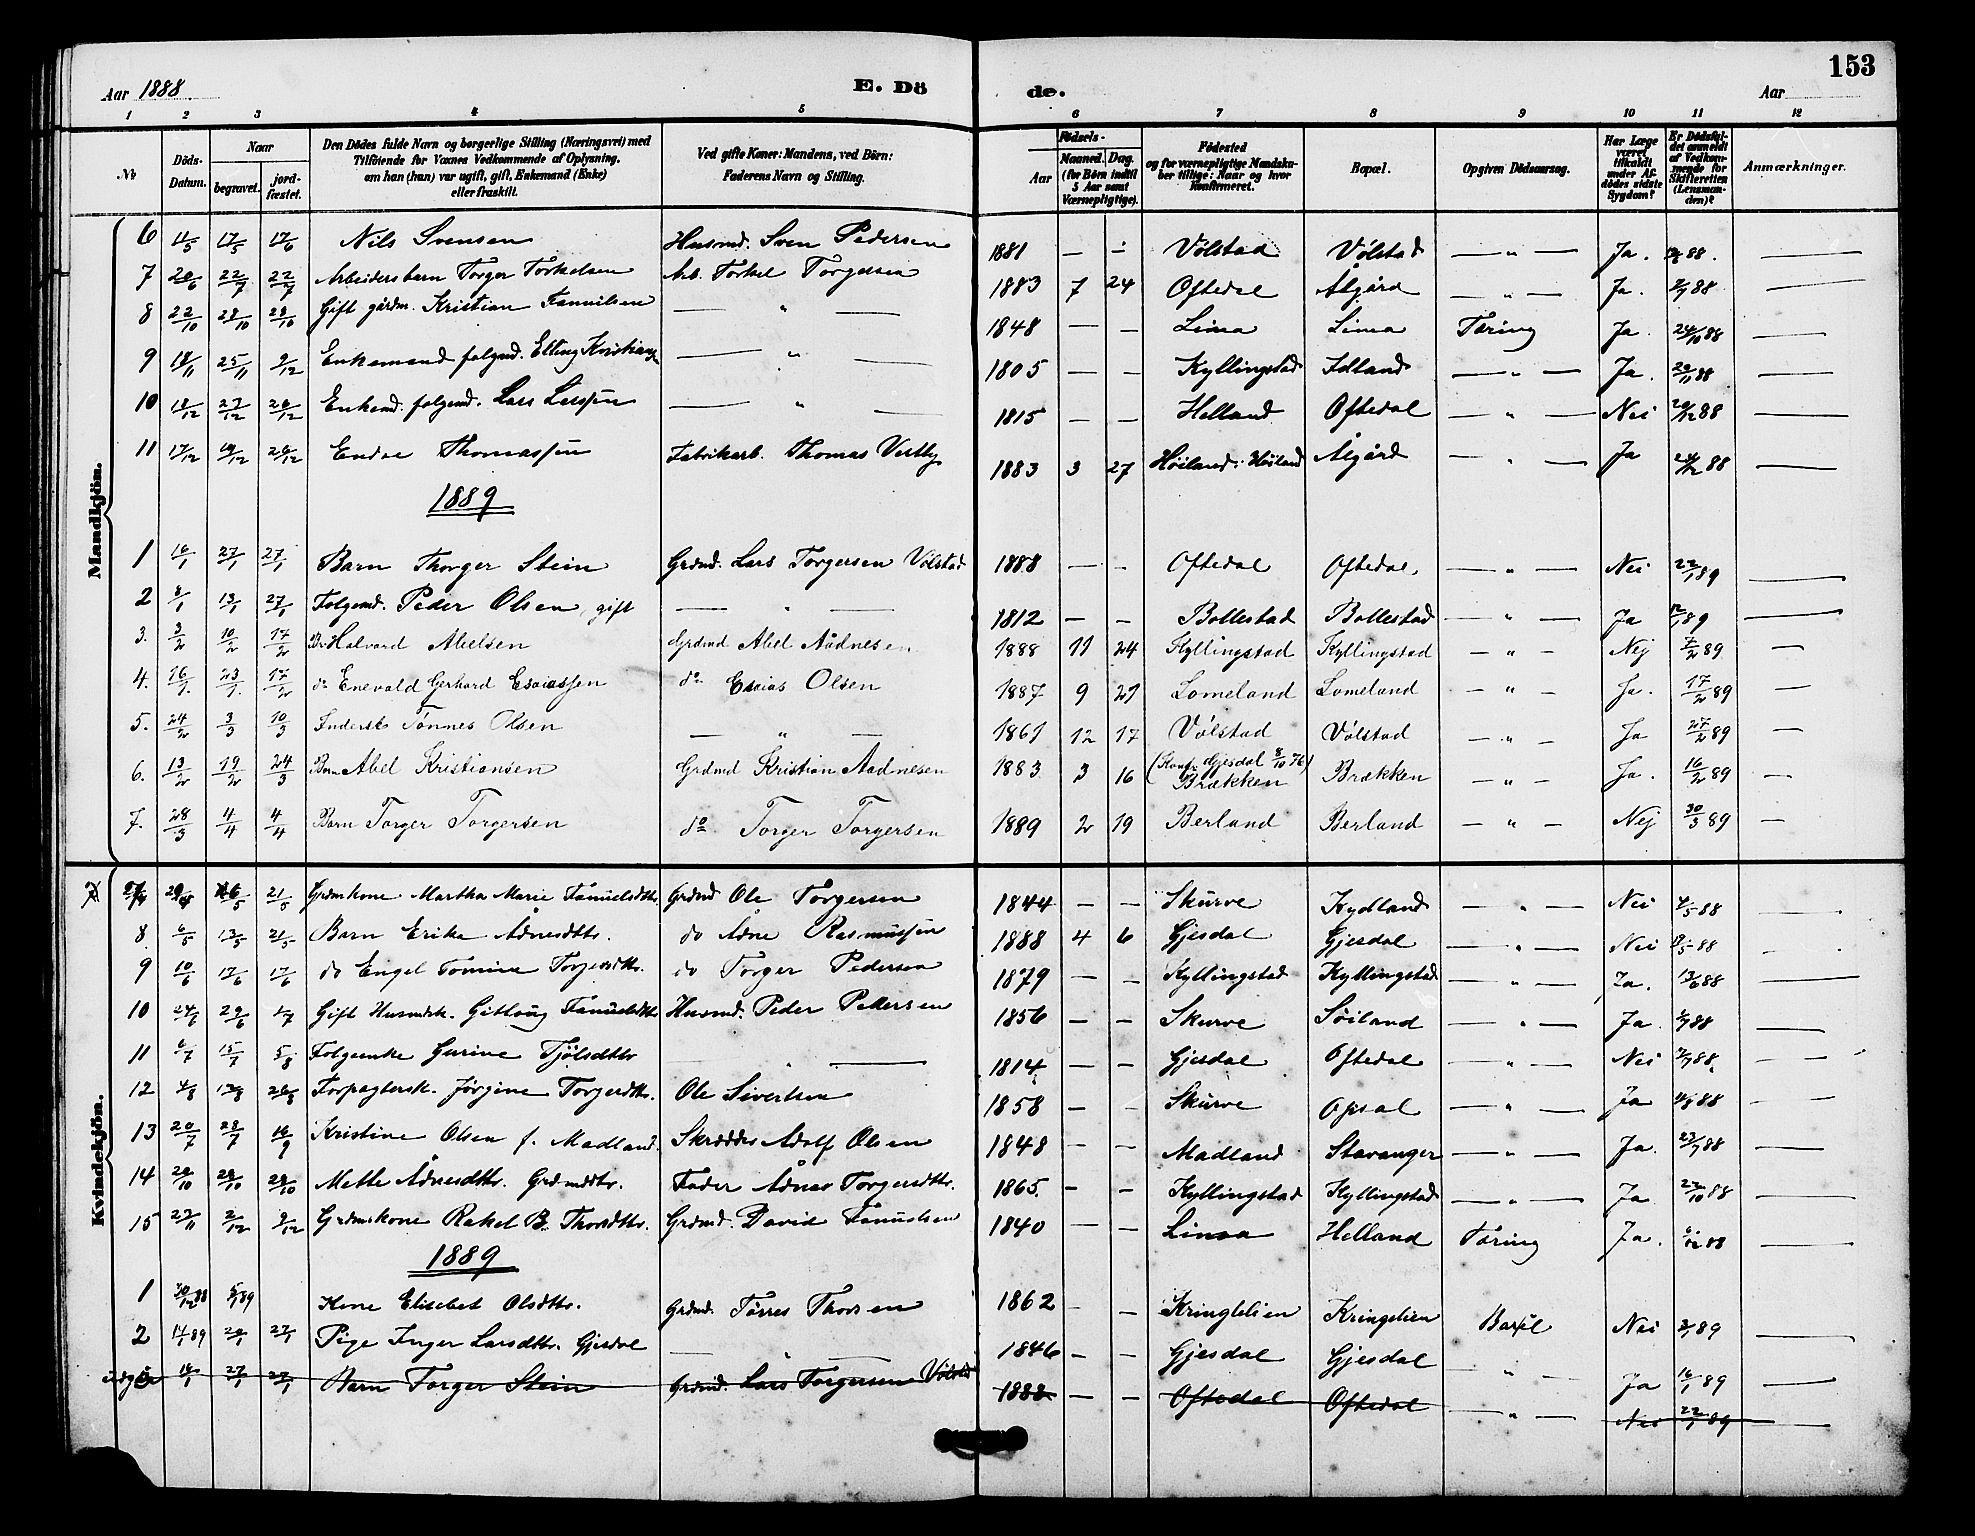 Aar 1888. E. Dö de. Aar 153
1 2 3 4 5 6 7 8 9 10 11 12
No
Döds-Datum.
Naar begravet. jordfæstet.
Den Dödes fulde Navn og borgerlige Stilling (Næringsvei) med
Tilföiende for Voxnes Vedkommende af Oplysning,
om han (hun) var ugift, gift, Enkemand (Enke)
eller fraskilt.
Ved gifte Koner: Mandens, ved Börn:
Faderens Navn og Stilling.
Födsels-
Aar Maaned. Dag.
(for Börn indtil 5 Aar samt Værnepligtige).
Födested
og for værnepligtige Mandskaber tillige: Naar og hvor Konfirmeret.
Bopæl.
Opgiven Dödsaarsag.
Har Læge været tilkaldt under Afdödes sidste Sygdom?
Er Dödsfaldet anmeldt af Vedkommende for Skifteretten (Lensmanden)?
Anmærkninger.
Mandkjön.
6 11/5 17/5 17/6 Nils Svensen Husmd. Sven Pedersen 1881 — — Völstad Völstad — " — Ja. 88. —
7 20/6 22/7 22/7 Arbeidersbarn Torger Torkelsen Arb. Torkel Torgersen 1883 7 24 Oftedal Ålgård — " — Ja. 2/7 88 —
8 22/10 28/10 28/10 Gift gårdm. Kristian Fanuelsen — " — 1848 — — Lima Lima Tæring Ja. 24/10 88 —
9 18/11 25/11 9/12 Enkemand folgmd. Elling Kristiansen — " — 1805 — — Kyllingstad Idland — " — Ja. 20/11 88 —
10 18/12 27/12 26/12 Enkemd. folgmd. Lars Larssen — " — 1815 — — Helland Oftedal — " — Nei 20/12 88 —
11 17/12 19/12 26/12 Endre Thomassen Fabrikarb. Thomas Vestly 1883 3 27 Höiland i Höiland Ålgård — " — Ja 24/12 88 —
1889
1 16/1 27/1 27/1 Barn Thorger Stein Grdmd. Lars Torgersen Völstad 1888 — — Oftedal Oftedal — " — Nei 22/1 89 —
2 8/1 13/1 27/1 Folgemd. Peder Olsen, gift — " — 1812 — — Bollestad Bollestad — " — Ja 12/1 89 —
3. 3/2 10/2 17/2 Bn Halvard Abelsen Grdmd Abel Aadnesen 1888 11 24 Kyllingstad Kyllingstad — " — Nej 7/2 89 —
4. 16/1. 23/1. 17/2 do Enevald Gerhard Esaiassen do Esaias Olsen 1887 9 27 Lomeland Lomeland — " — Ja. 17/2 89 —
5. 24/2 3/3 10/3 Inderst Tönnes Olsen — " — 1861 12 17 Völstad Völstad — " — Ja 27/2 89 —
(Konf. Gjesdal 8/10 76)
6. 13/2 19/2 24/3 Barn Abel Kristiansen Grdmd Kristian Aadnesen 1883 3 16 Brækken Brækken — " — Ja. 16/2 89 —
7. 28/3 4/4 4/4 Barn Torger Torgersen do Torger Torgersen 1889 2 19 Berland Berland — " — Nej 30/3 89 —
Kvindekjön.
7 29/4 6/5 21/5 Grdmkone Martha Marie Fanuelsdtr. Grdmd Ole Torgersen 1844 — — Skurve Kydland — " — Nei 4/5 88 —
8 6/5 13/5 21/5 Barn Erika Ådnesdttr. do Ådne Rasmussen 1888 4 6 Gjesdal Gjesdal — " — Nei 88 —
9 10/6 17/6 17/6 do Engel Tomine Torjersdttr. do Torger Pedersen 1879 — — Kyllingstad Kyllingstad — " — Ja. 13/6 88 —
10 24/6 29/6 1/7 Gift Husmdsk. Gitlaug Fanuelsdttr Husmd. Peder Pedersen 1856 — — Skurve Söiland — " — Ja. 88 —
11 6/7 15/7 5/8 Folgeenke Gurine Tjölsdttr — " — 1814 — — Gjesdal Oftedal — " — Nei 88. —
12 4/8 12/8 26/8 Forpagtersk. Jörgine Torgersdttr. Ole Sivertsen 1858 — — Skurve Opsal — " — Ja 88 —
13 20/7 28/7 16/9 Kristine Olsen f. Madland. Skrædder Adolf Olsen 1848 — — Madland Stavanger — " — Ja. 23/7 88 —
14 20/10 28/10 28/10 Mette Ådnesdttr. Grdmdttr. Fader Ådne Torgersdttr. 1865. — — Kyllingstad Kyllingstad — " — Ja 23/10 88 —
15 27/11 2/12 9/12 Grdmkone Rakel B. Thorsdttr. Grdmd. David Fanuelsen 1840 — — Limaa Helland Tæring Ja. 6/12 88 —
1889
1 30/12 88 5/1 89 Kone Elisabet Olsdttr. Grdmd. Törres Thorsen 1862 — — Kringlelien Kringelien Barsel Nei 3/1 89 —
2 14/1 89 20/1 27/1 Pige Inger Larsdttr. Gjesdal — " — 1846 — — Gjesdal Gjesdal " — Ja 16/1 89 —
udgår 16/1 27/1 27/1 Barn Torger Stein Grdmd. Lars Torgersen Völstad 1888 — — Oftedal Oftedal — " — Nei 22/1 89 —